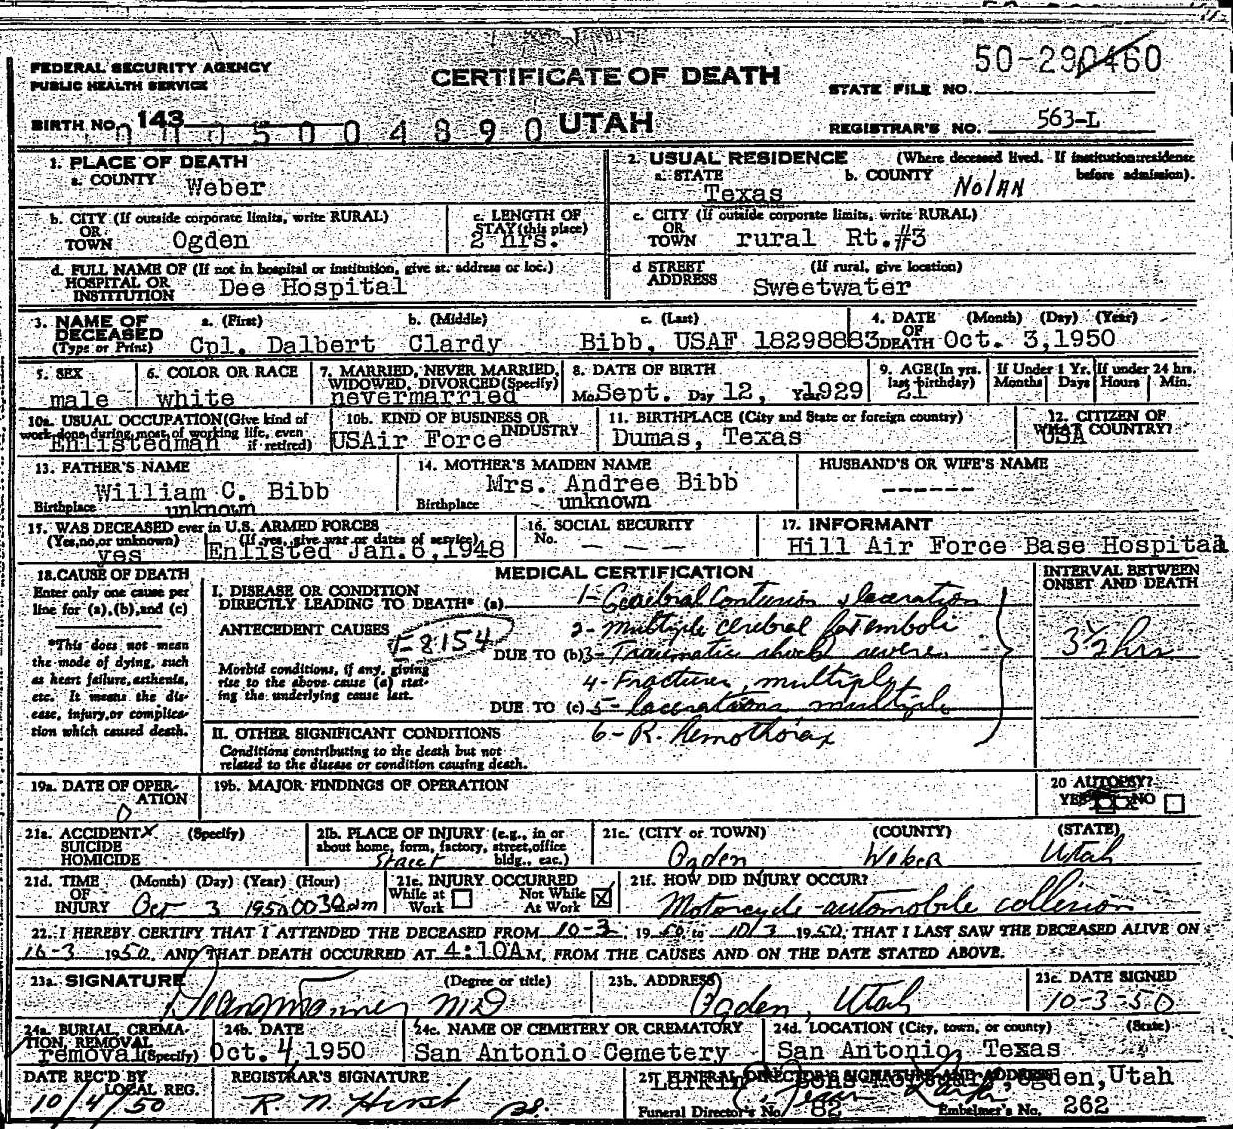 FEDERAL SECURITY AGENCY
PUBLIC HEALTH SERVICE
CERTIFICATE OF DEATH
50-290460
STATE FILE NO.
BIRTH NO. 143
05004890
UTAH
REGISTRAR'S NO. 563-L
1. PLACE OF DEATH
a. COUNTY Weber
2. USUAL RESIDENCE (Where deceased lived. If institution: residence before admission).
a. STATE Texas
b. COUNTY Nolan
b. CITY (If outside corporate limits, write RURAL)
OR
TOWN Ogden
c. LENGTH OF
STAY (this place)
2 hrs.
c. CITY (If outside corporate limits, write RURAL)
OR
TOWN rural Rt.#3
d. FULL NAME OF (If not in hospital or institution, give st. address or loc.)
HOSPITAL OR
INSTITUTION Dee Hospital
d STREET (If rural, give location)
ADDRESS Sweetwater
3. NAME OF
DECEASED
(Type or Print)
a. (First) b. (Middle) c. (Last)
Cpl. Dalbert Clardy Bibb, USAF 18298883
4. DATE (Month) (Day) (Year)
OF
DEATH Oct. 3,1950
5. SEX
male
6. COLOR OR RACE
white
7. MARRIED, NEVER MARRIED,
WIDOWED, DIVORCED (Specify)
nevermarried
8. DATE OF BIRTH
Mo. Sept. Day 12, Year 1929
9. AGE (In yrs.
last birthday)
21
If Under 1 Yr.
Months Days
If under 24 hrs.
Hours Min.
10a. USUAL OCCUPATION (Give kind of
work done during most of working life, even
if retired)
Enlistedman
10b. KIND OF BUSINESS OR
INDUSTRY
USAir Force
11. BIRTHPLACE (City and State or foreign country)
Dumas, Texas
12. CITIZEN OF
WHAT COUNTRY?
USA
13. FATHER'S NAME
William C. Bibb
Birthplace unknown
14. MOTHER'S MAIDEN NAME
Mrs. Andree Bibb
Birthplace unknown
HUSBAND'S OR WIFE'S NAME
------
15. WAS DECEASED ever in U.S. ARMED FORCES
(Yes, no, or unknown) (If yes, give war or dates of service)
yes Enlisted Jan.6,1948
16. SOCIAL SECURITY
No. - - -
17. INFORMANT
Hill Air Force Base Hospital
18. CAUSE OF DEATH
Enter only one cause per
line for (a), (b), and (c)
*This does not mean
the mode of dying, such
as heart failure, asthenia,
etc. It means the dis-
ease, injury, or complica-
tion which caused death.
MEDICAL CERTIFICATION
INTERVAL BETWEEN
ONSET AND DEATH
I. DISEASE OR CONDITION
DIRECTLY LEADING TO DEATH* (a) 1- Cerebral Contusion & laceration
ANTECEDENT CAUSES E8154
2- Multiple cerebral fat emboli
DUE TO (b) 3- Traumatic shock severe
3 1/2 hrs
Morbid conditions, if any, giving
rise to the above cause (a) stat-
ing the underlying cause last.
4- Fractures, multiple
DUE TO (c) 5- lacerations multiple
II. OTHER SIGNIFICANT CONDITIONS
6- R. Hemothorax
Conditions contributing to the death but not
related to the disease or condition causing death.
19a. DATE OF OPER-
ATION
0
19b. MAJOR FINDINGS OF OPERATION
20 AUTOPSY?
YES NO
21a. ACCIDENT X (Specify)
SUICIDE
HOMICIDE
21b. PLACE OF INJURY (e.g., in or
about home, form, factory, street, office
bldg., etc.)
Street
21c. (CITY or TOWN) (COUNTY) (STATE)
Ogden Weber Utah
21d. TIME (Month) (Day) (Year) (Hour)
OF
INJURY Oct 3 1950 0030am
21e. INJURY OCCURRED
While at
Work
Not While
At Work
21f. HOW DID INJURY OCCUR?
Motorcycle-automobile collision
22. I HEREBY CERTIFY THAT I ATTENDED THE DECEASED FROM 10-3, 1950 to 10/3 1950, THAT I LAST SAW THE DECEASED ALIVE ON
10-3 1950, AND THAT DEATH OCCURRED AT 4:10A M, FROM THE CAUSES AND ON THE DATE STATED ABOVE.
23a. SIGNATURE (Degree or title)
MD
23b. ADDRESS
Ogden, Utah
23c. DATE SIGNED
10-3-50
24a. BURIAL, CREMA-
TION, REMOVAL
(Specify)
removal
24b. DATE
Oct. 4, 1950
24c. NAME OF CEMETERY OR CREMATORY
San Antonio Cemetery
24d. LOCATION (City, town, or county) (State)
San Antonio, Texas
DATE REC'D BY
LOCAL REG.
10/4/50
REGISTRAR'S SIGNATURE
R. N. Hirst
25. FUNERAL DIRECTOR'S SIGNATURE AND ADDRESS
Larkin & Sons Mortuary, Ogden, Utah
Funeral Director's No. 82
Embalmer's No. 262